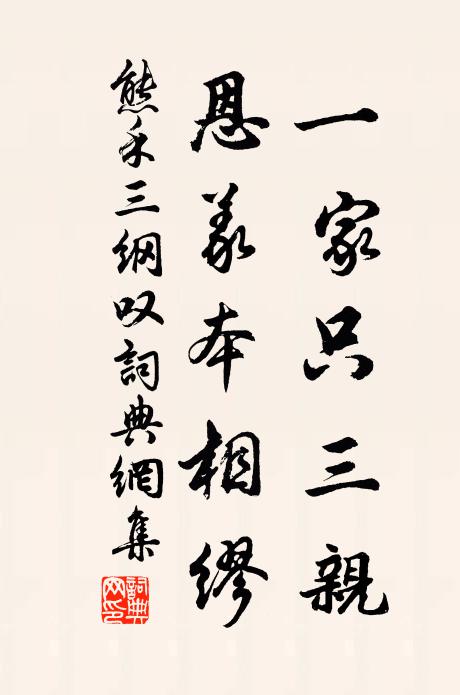 一家只三親
恩義本相繆
熊禾三綱叹詞典網集
詞典網印